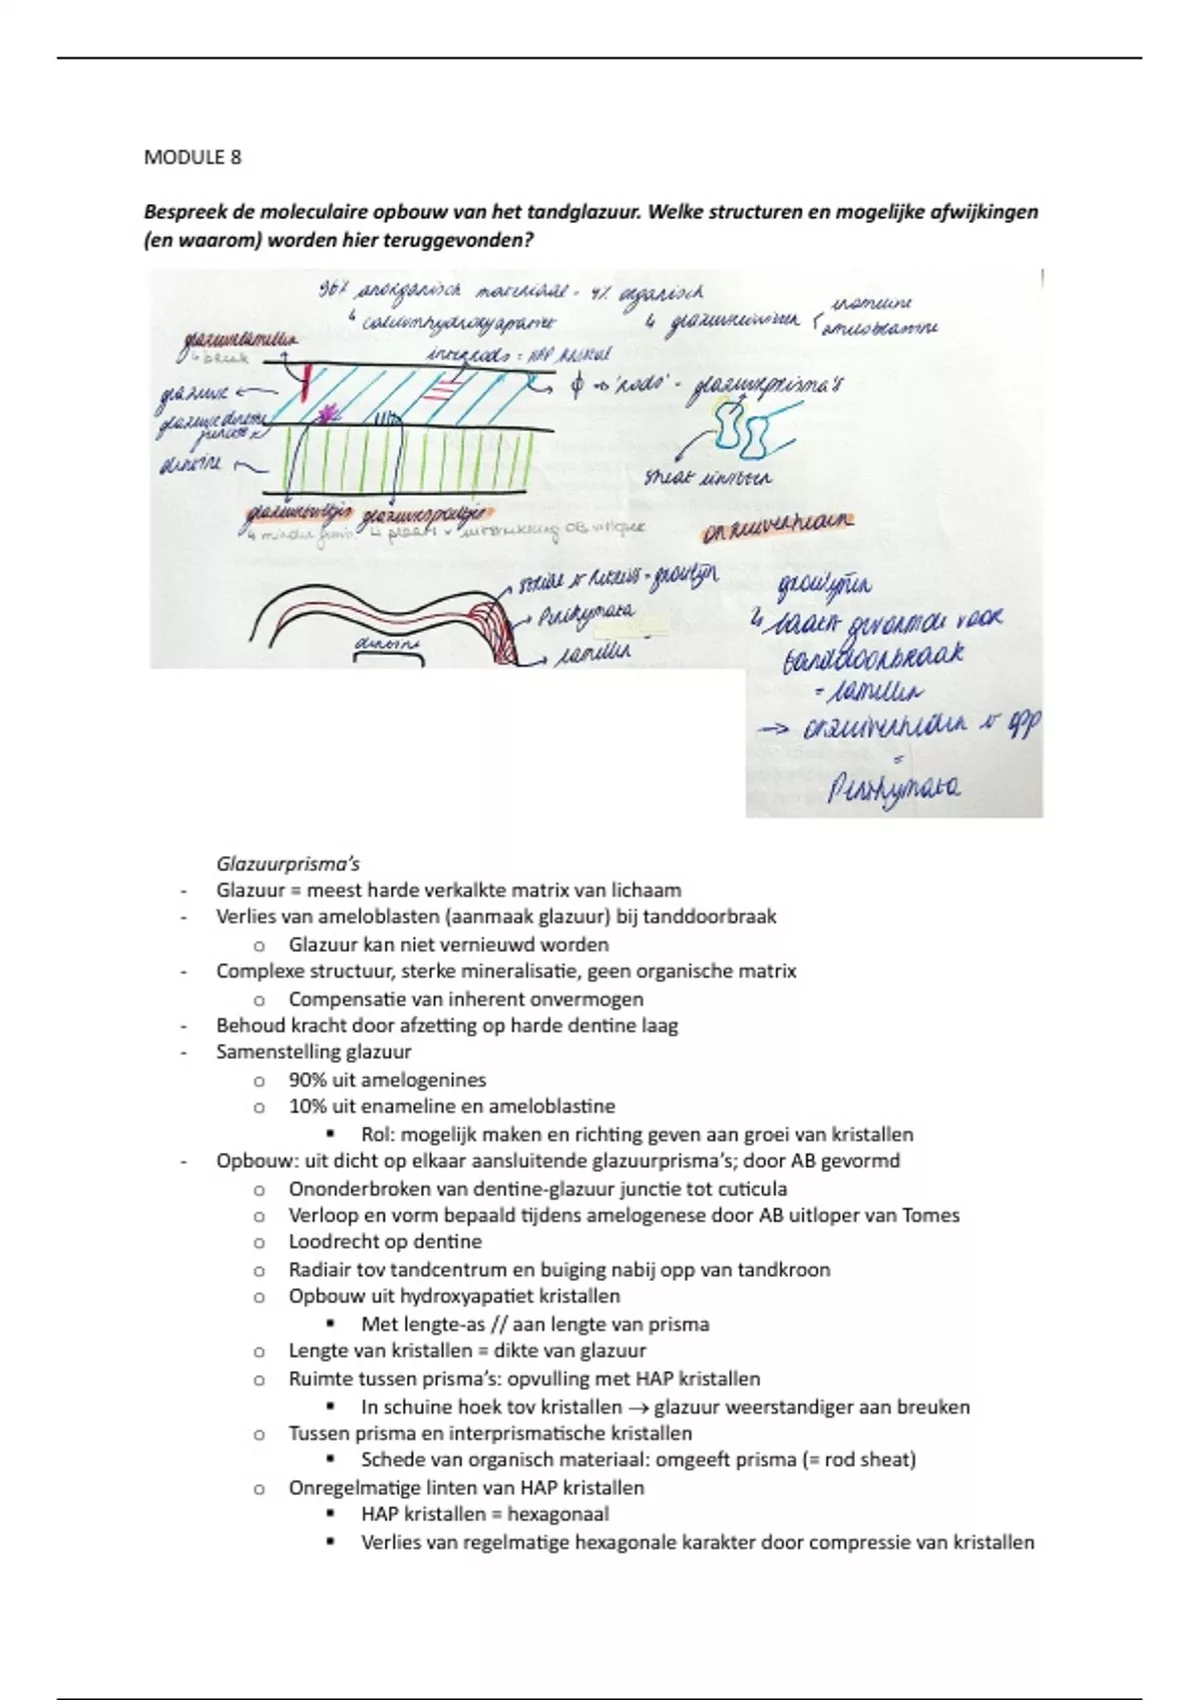 MODULE 8
Bespreek de moleculaire opbouw van het tandglazuur. Welke structuren en mogelijke afwijkingen
(en waarom) worden hier teruggevonden?
96% anorganisch materiaal - 4% organisch
↳ calciumhydroxyapatiet
↳ glazuureiwitten
enameline
ameloblastine
glazuurlamellen
↳ break
interrods = HAP kristal
glazuur
'rods' - glazuurprisma's
glazuur dentine
junctie
dentine
sheat eiwitten
glazuurbultjes
glazuurspoeltjes
onzuiverheden
striae v Retzius = groeilijn
Perikymata
lamellen
dentine
groeilijnen
↳ laatst gevormde voor
tanddoorbraak
= lamellen
→ onzuiverheden v opp
=
Perikymata
Glazuurprisma’s
- Glazuur = meest harde verkalkte matrix van lichaam
- Verlies van ameloblasten (aanmaak glazuur) bij tanddoorbraak
o Glazuur kan niet vernieuwd worden
- Complexe structuur, sterke mineralisatie, geen organische matrix
o Compensatie van inherent onvermogen
- Behoud kracht door afzetting op harde dentine laag
- Samenstelling glazuur
o 90% uit amelogenines
o 10% uit enameline en ameloblastine
▪ Rol: mogelijk maken en richting geven aan groei van kristallen
- Opbouw: uit dicht op elkaar aansluitende glazuurprisma’s; door AB gevormd
o Ononderbroken van dentine-glazuur junctie tot cuticula
o Verloop en vorm bepaald tijdens amelogenese door AB uitloper van Tomes
o Loodrecht op dentine
o Radiair tov tandcentrum en buiging nabij opp van tandkroon
o Opbouw uit hydroxyapatiet kristallen
▪ Met lengte-as // aan lengte van prisma
o Lengte van kristallen = dikte van glazuur
o Ruimte tussen prisma’s: opvulling met HAP kristallen
▪ In schuine hoek tov kristallen → glazuur weerstandiger aan breuken
o Tussen prisma en interprismatische kristallen
▪ Schede van organisch materiaal: omgeeft prisma (= rod sheat)
o Onregelmatige linten van HAP kristallen
▪ HAP kristallen = hexagonaal
▪ Verlies van regelmatige hexagonale karakter door compressie van kristallen